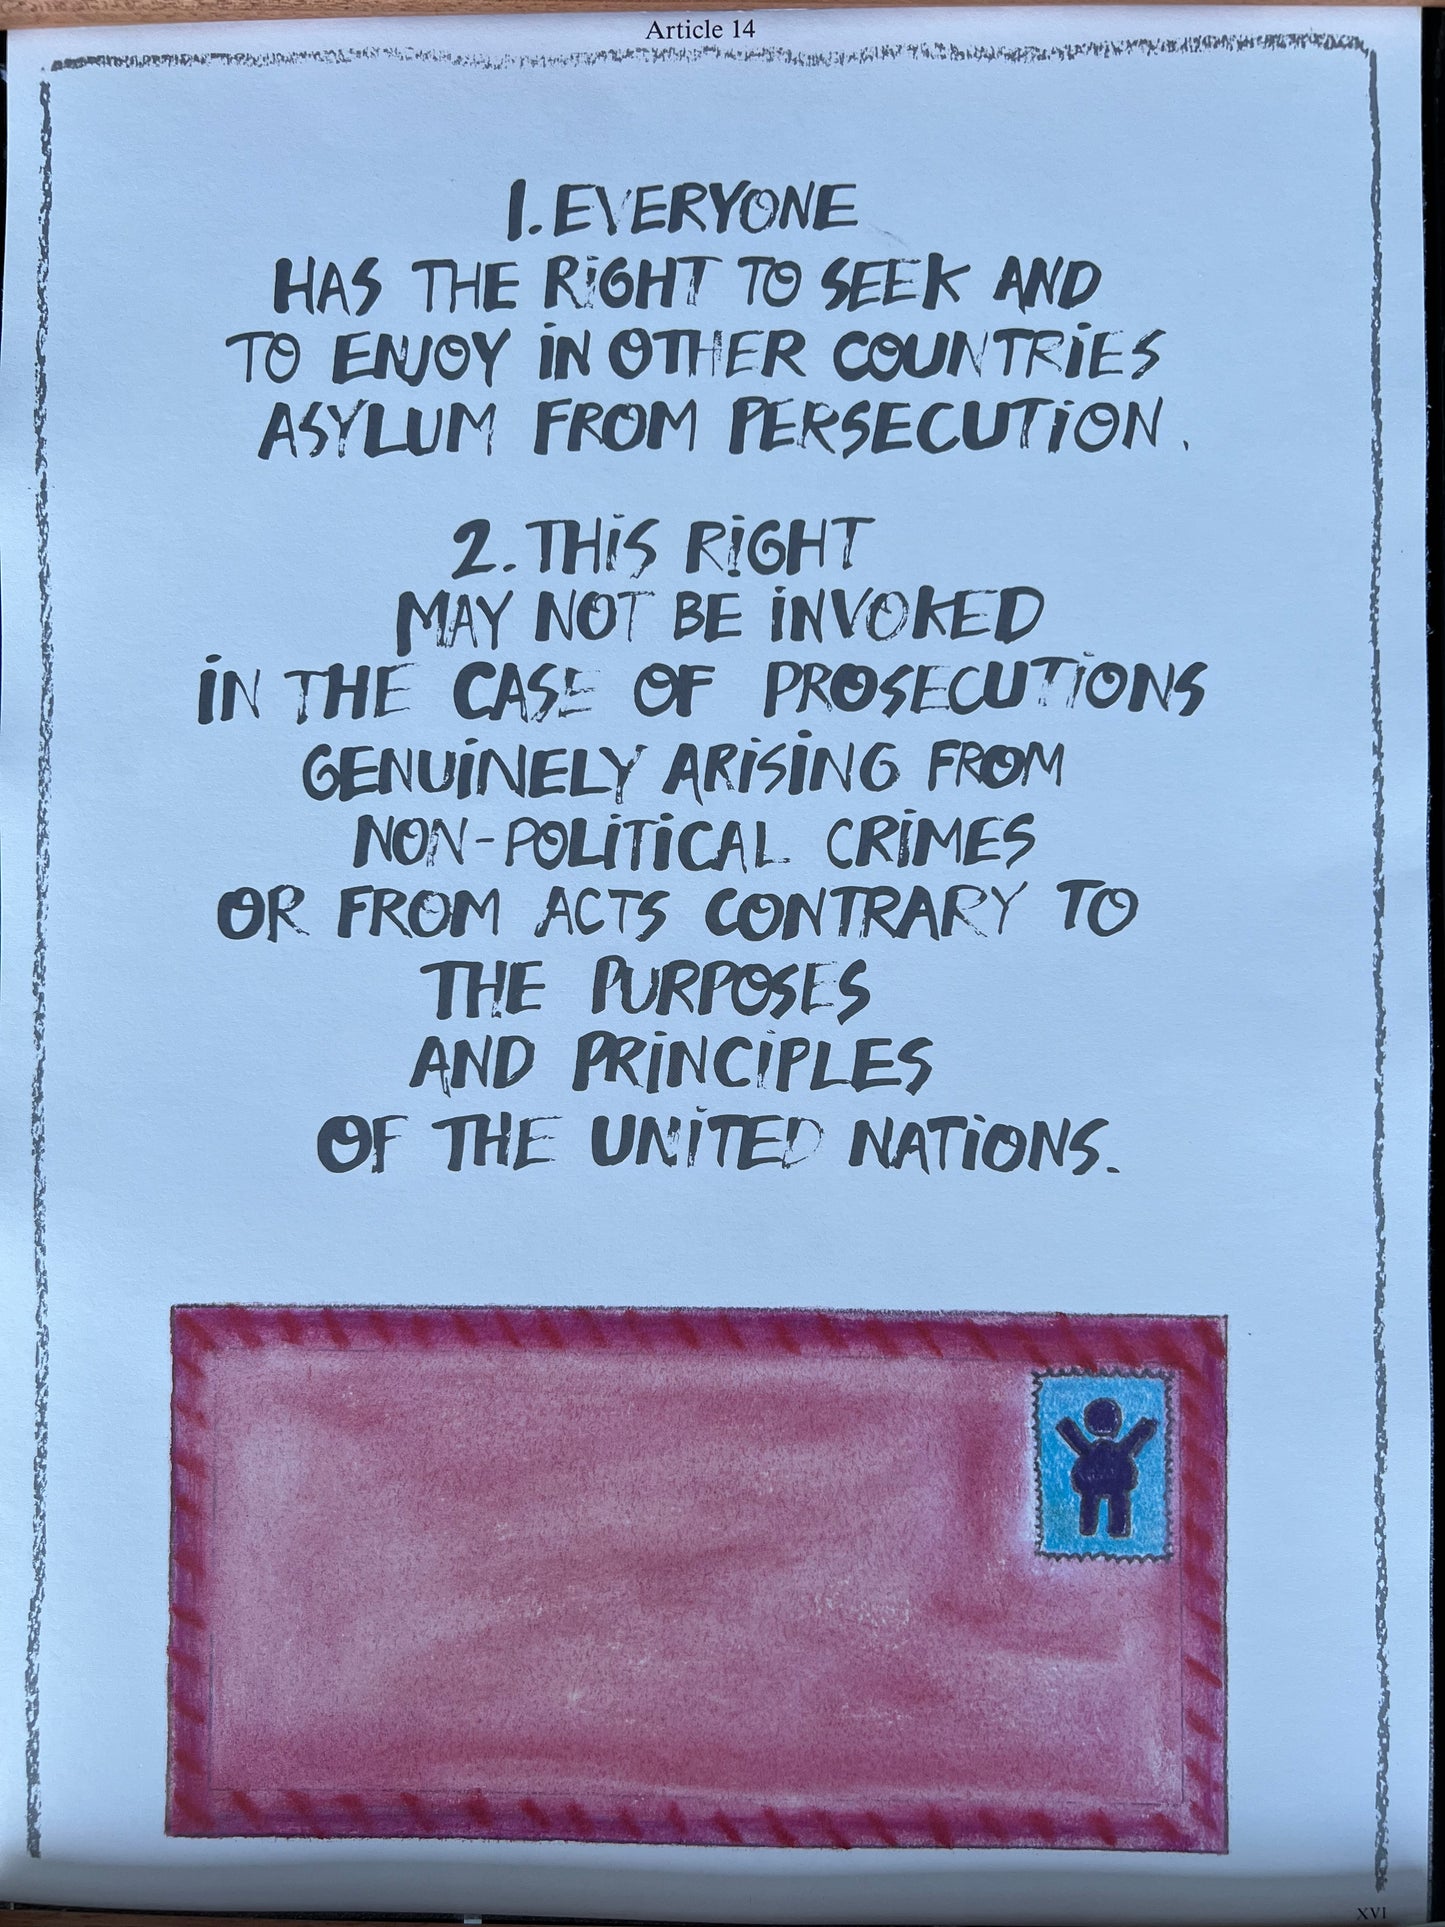 Article 14
1. EVERYONE
HAS THE RiGHT TO SEEK AND
TO ENJOY iN OTHER COUNTRiES
ASYLUM FROM PERSECUTiON.
2. THiS RiGHT
MAY NOT BE iNVOKED
iN THE CASE OF PROSECUTiONS
GENUiNELY ARiSiNG FROM
NON-POLiTiCAL CRiMES
OR FROM ACTS CONTRARY TO
THE PURPOSES
AND PRiNCiPLES
OF THE UNiTED NATiONS.
XVI